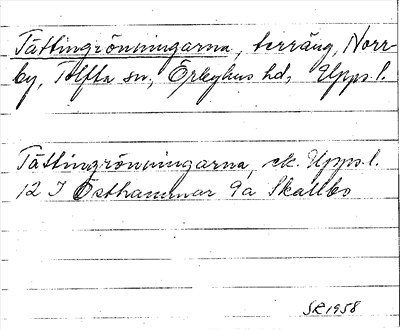 Tättingrönningarna, terräng, Norr-
by, Tolfta sn, Örbyhus hd, Upps. l.
Tättingrönningarna, ek. Upps. l.
12 I Östhammar 9a Skallbo
SR 1958